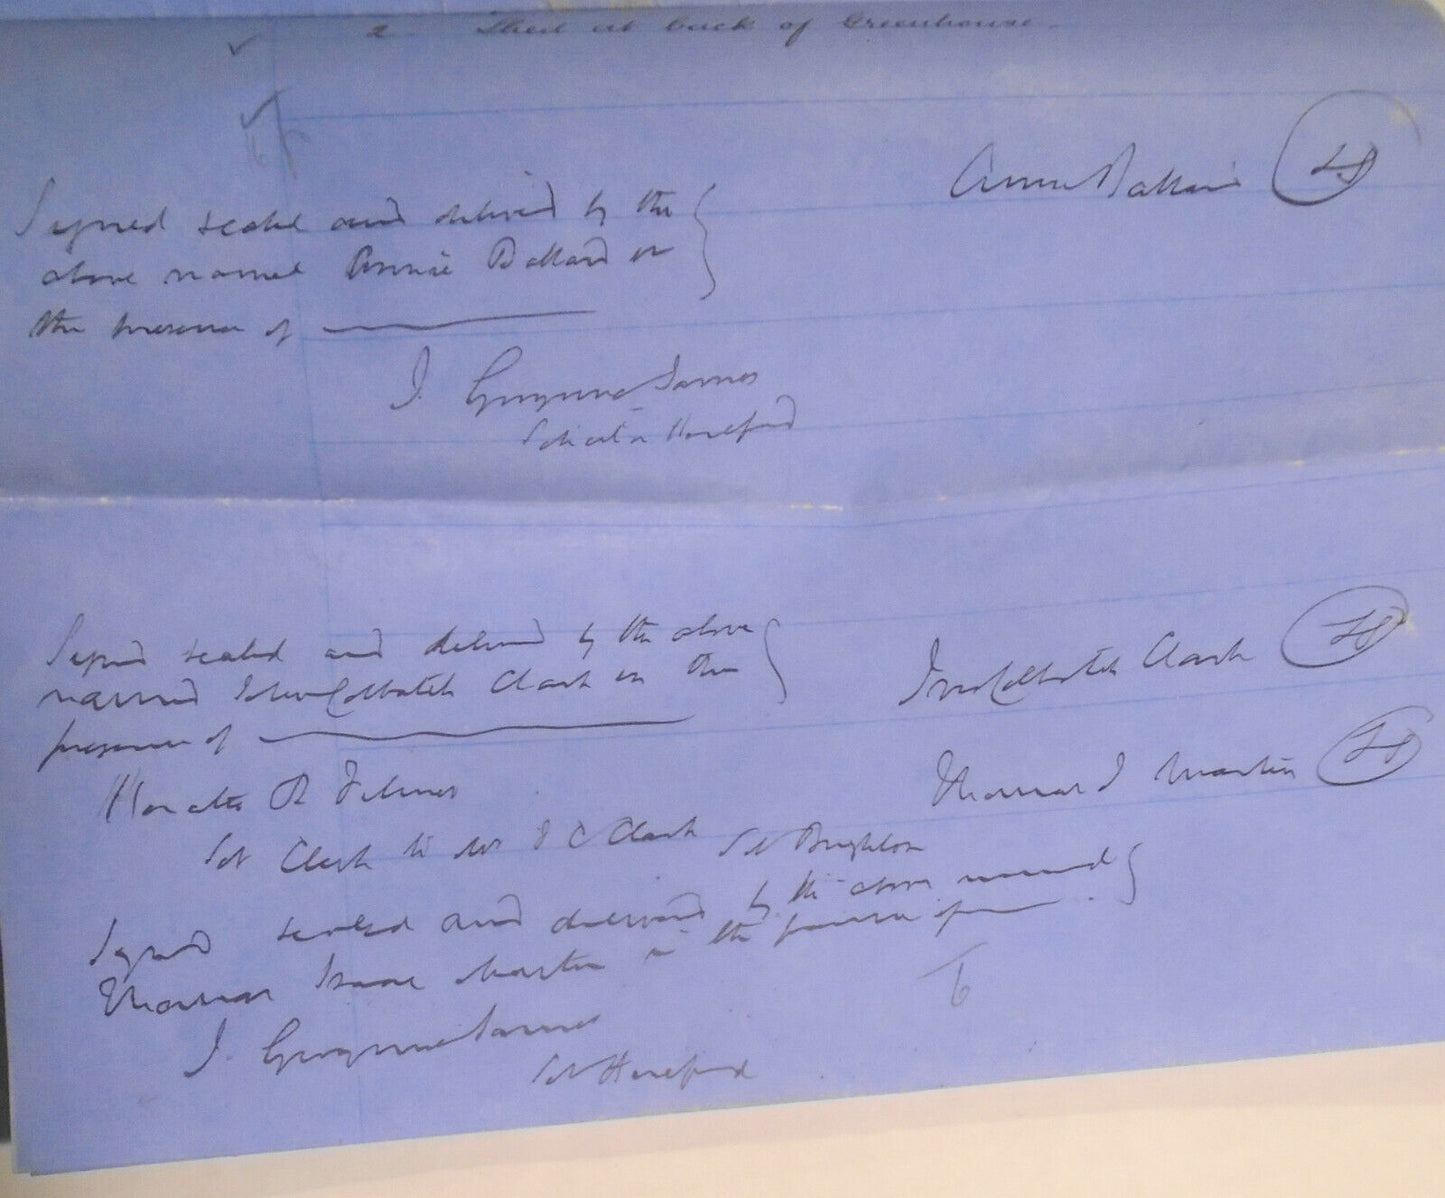 2 Shed at back of Greenhouse.
Annie Ballard LS
Signed sealed and delivered by the
above named Annie Ballard in
the presence of
J. Gwynne James
Solicitor Hereford
Signed sealed and delivered by the above
named Clark in the
presence of
Clark LS
Thomas I Martin LS
Horatio R Filmer
Sol Clerk to Mr J C Clark Sol Brighton
Signed sealed and delivered by the above named
Thomas Isaac Martin in the presence of
J. Gwynne James
Sol Hereford